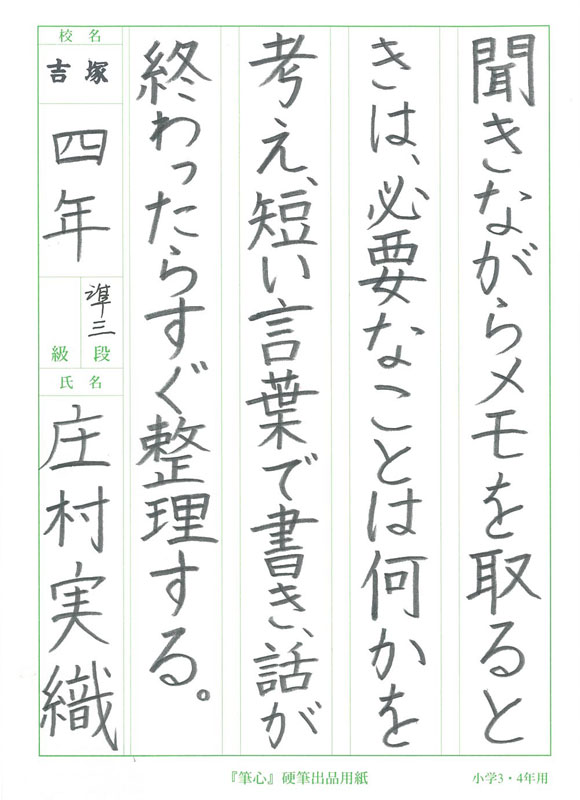 聞きながらメモを取ると
きは、必要なことは何かを
考え、短い言葉で書き、話が
終わったらすぐ整理する。
校名
吉塚
四年
準三
段
級
氏名
庄村実織
『筆心』硬筆出品用紙
小学3・4年用